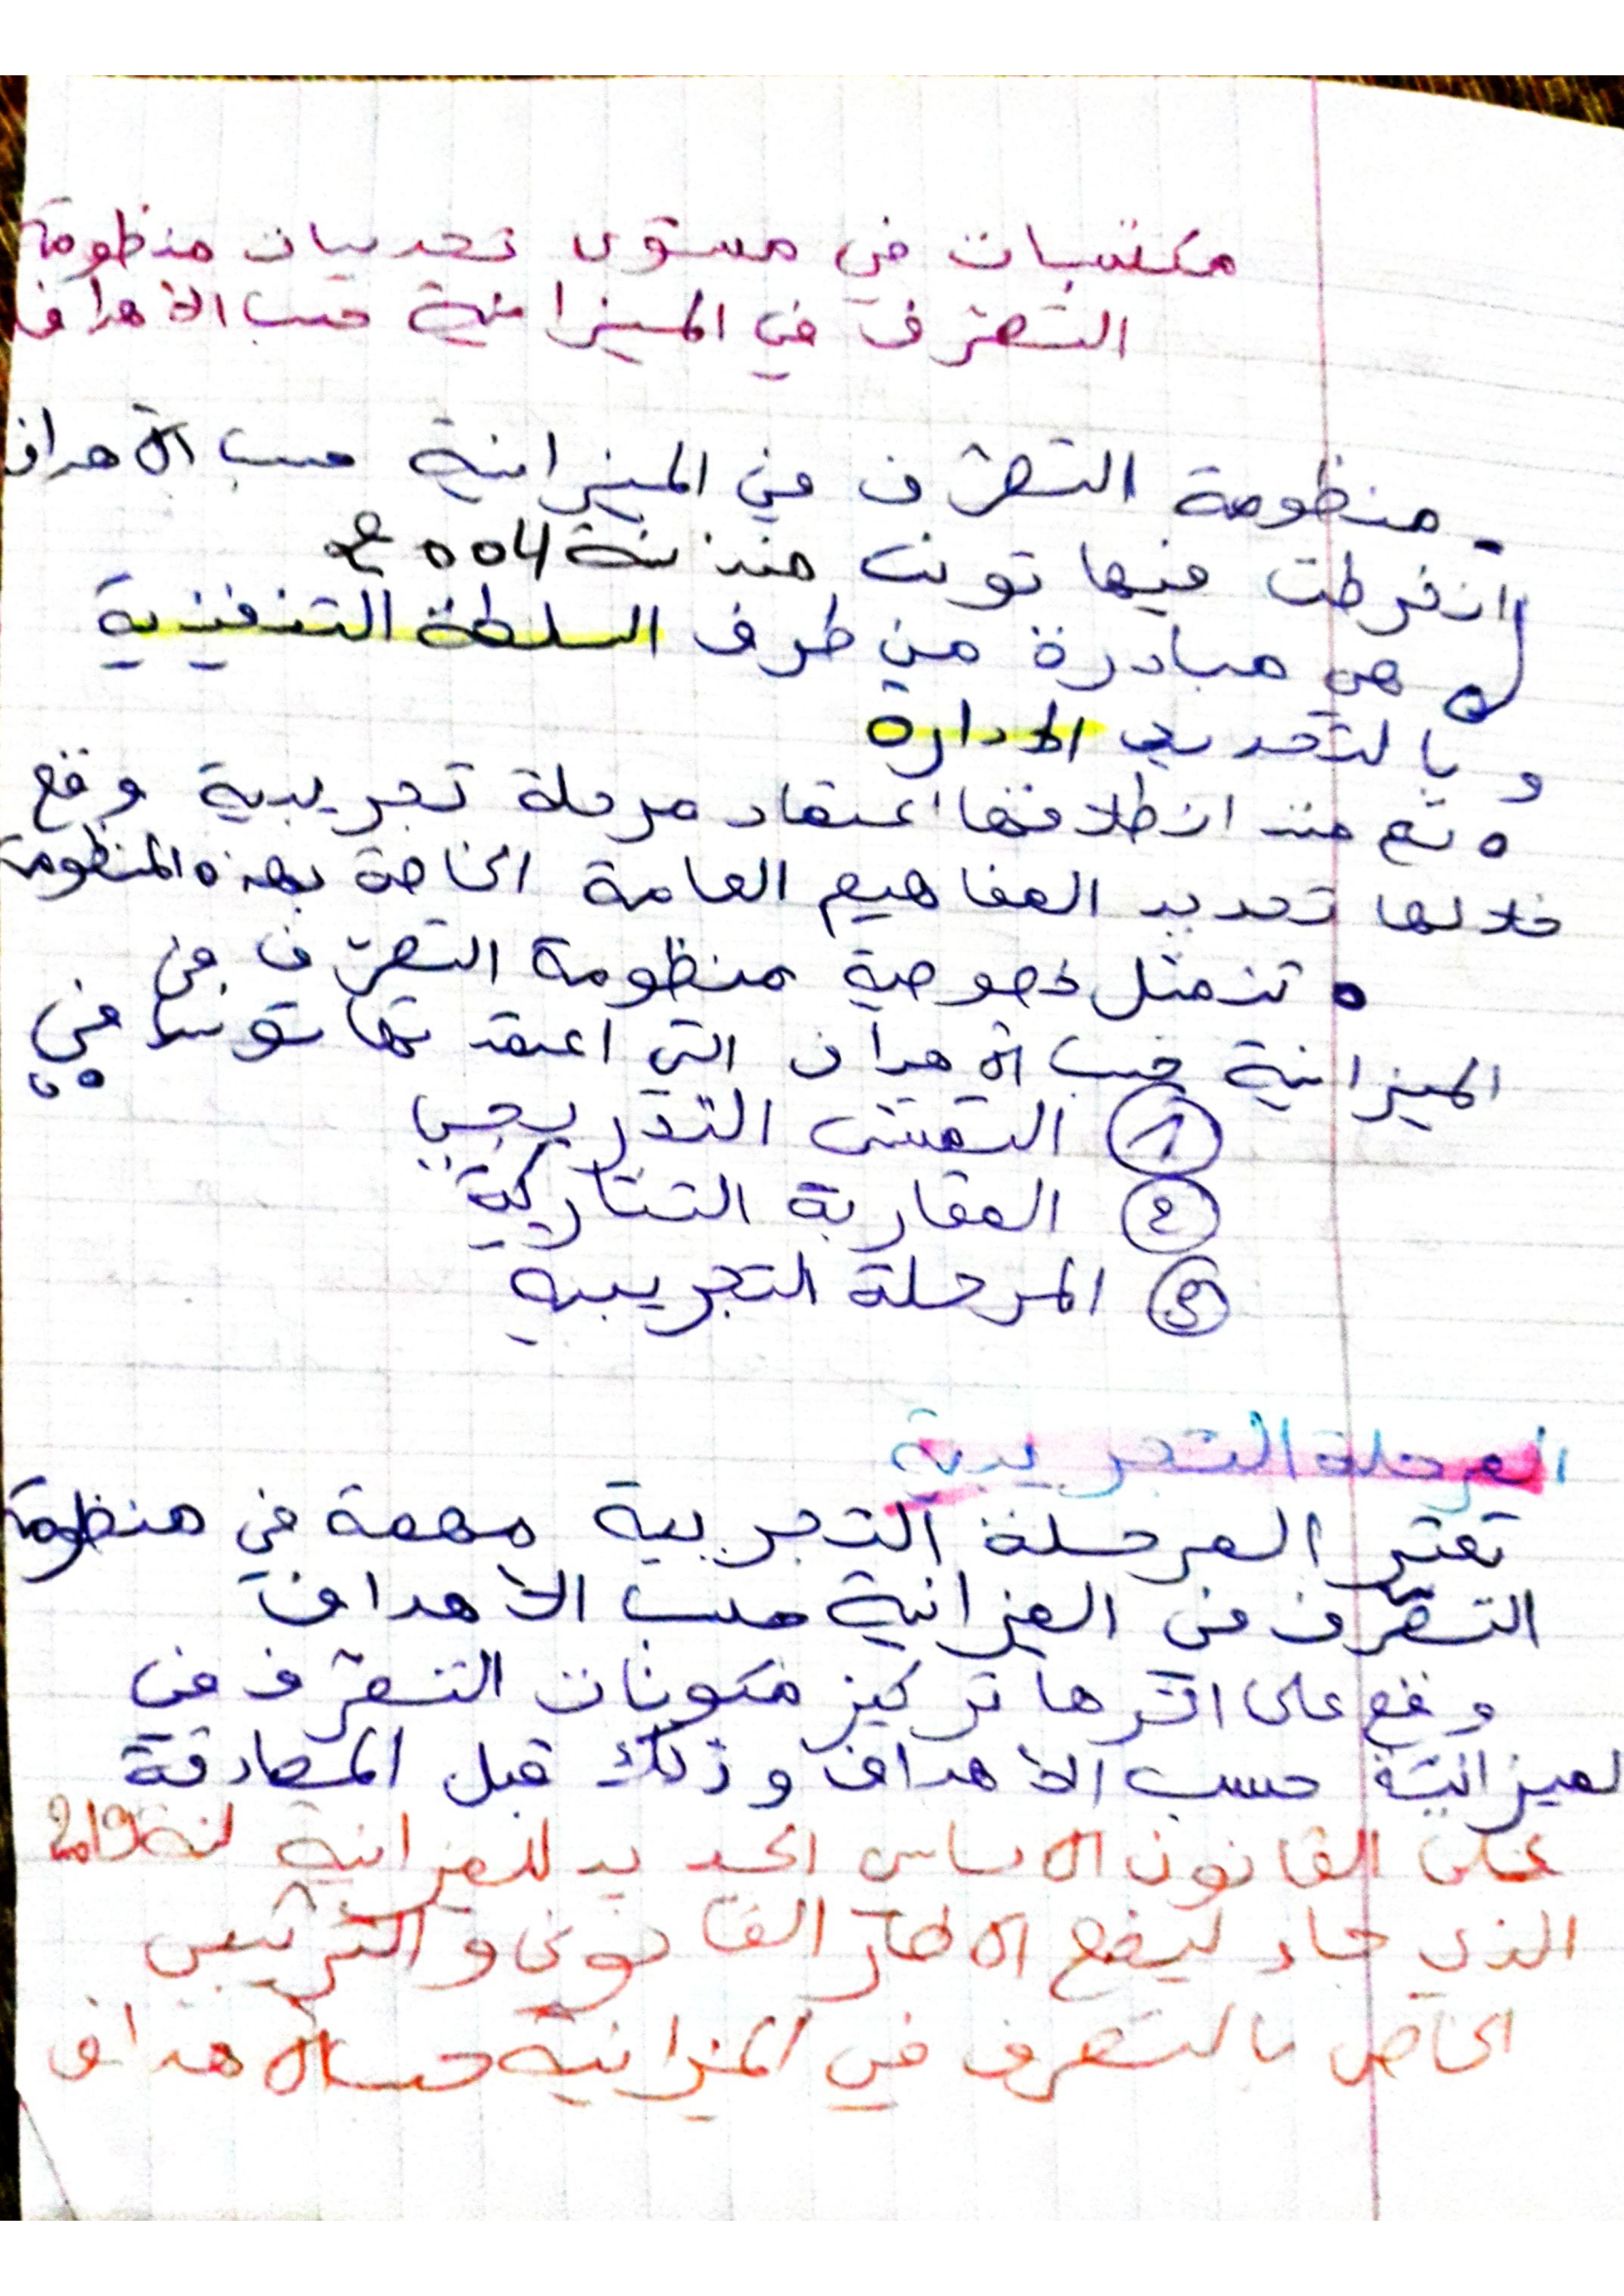 مكتسبات في مستوى تحديات منظومة
التصرف في الميزانية حسب الأهداف
- منظومة التصرّف في الميزانية حسب الأهداف
انخرطت فيها تونس منذ سنة 2004
هي مبادرة من طرف السلطة التنفيذية
و بالتحديد الإدارة
تم منذ انطلاقتها اعتماد مرحلة تجريبية وقع
خلالها تحديد المفاهيم العامة الخاصة بهذه المنظومة
تتمثل خصوصية منظومة التصرّف في
الميزانية حسب الأهداف التي اعتمدتها تونس في :
1 التمشي التدريجي
2 المقاربة التشاركية
3 المرحلة التجريبية
المرحلة التجريبية
تعتبر المرحلة التجريبية مهمة في منظومة
التصرّف في الميزانية حسب الاهداف
وقع على اثرها تركيز مكونات التصرّف في
لميزانية حسب الاهداف وذلك قبل المصادقة
على القانون الأساسي الجديد للميزانية لسنة 2019
الذي جاء ليضع الإطار القانوني والترتيبي
الخاص بالتصرف في الميزانية حسب الأهداف